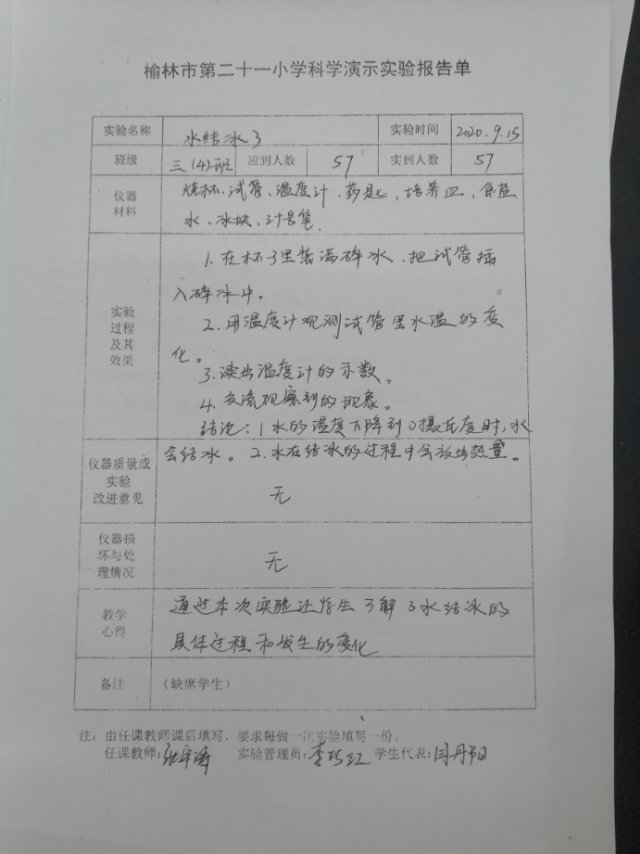 榆林市第二十一小学科学演示实验报告单
实验名称 水结冰了 实验时间 2020.9.15
班级 三(4)班 应到人数 57 实到人数 57
仪器材料 烧杯、试管、温度计、药匙、培养皿、食盐
水、冰块、计号笔
实验过程及其效果
1.在杯子里装满碎冰、把试管插
入碎冰中。
2.用温度计观测试管里水温的变
化。
3.读出温度计的示数。
4.交流观察到的现象。
结论:1水的温度下降到0摄氏度时,水
会结冰。2.水在结冰的过程中会放出热量。
仪器质量或实验改进意见 无
仪器损坏与处理情况 无
教学心得 通过本次实验让学生了解了水结冰的
具体过程和发生的变化
备注 (缺席学生)
注:由任课教师课后填写,要求每做一次实验填写一份。
任课教师: 实验管理员:李巧红 学生代表:闫丹阳